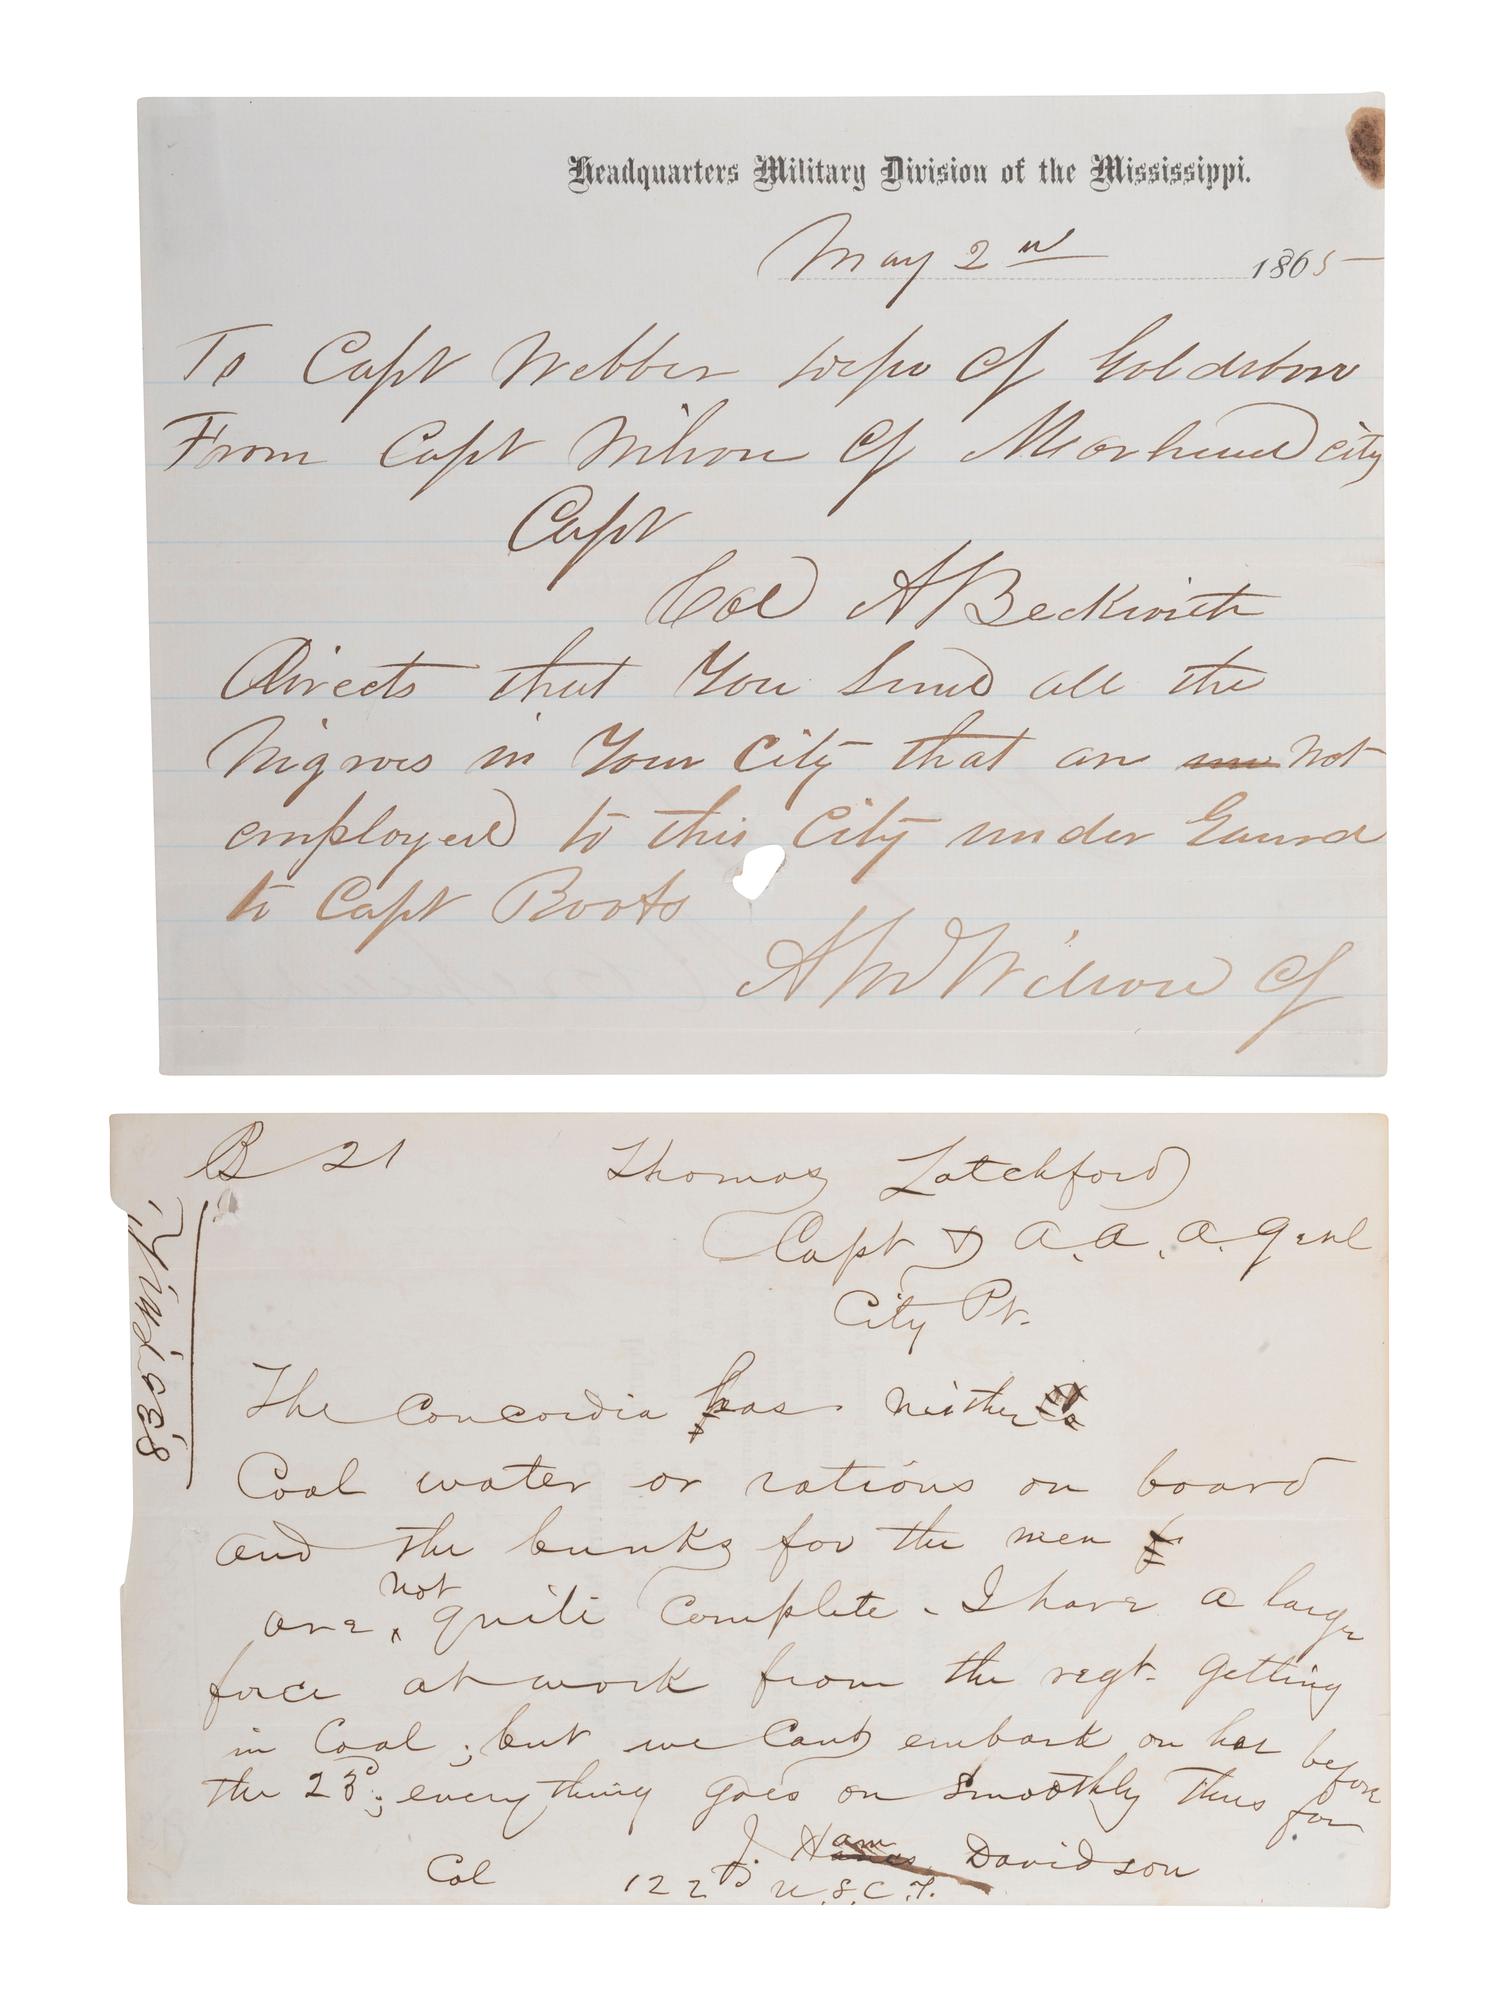 Headquarters Military Division of the Mississippi.
May 2nd 1865
To Capt Webber of Goldsboro
From Capt Wilson of Morhead city
Capt
Col A Beckwith
Directs that You Send all the
Nigroes in Your City that are not
employed to this City under Gaurd
to Capt Boots
A W Wilson
B 21
Thomas Latchford
Capt & A. A. A. Genl
City Pt.
The Concordia has neither
Coal water or rations on board
and the bunks for the men
are not quite Complete - I have a large
force at work from the regt. getting
in Coal; but we Cant embark on her before
the 23d; everything goes on Smoothly thus far
J. Ham Davidson
Col 122d U.S.C.T.